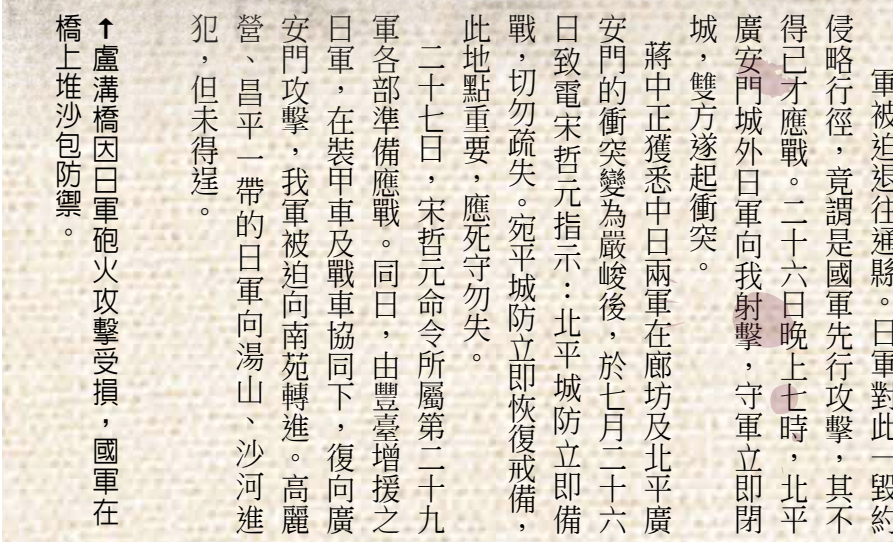 軍被迫退往通縣。日軍對此一毀約
侵略行徑，竟謂是國軍先行攻擊，其不
得已才應戰。二十六日晚上七時，北平
廣安門城外日軍向我射擊，守軍立即閉
城，雙方遂起衝突。
蔣中正獲悉中日兩軍在廊坊及北平廣
安門的衝突變為嚴峻後，於七月二十六
日致電宋哲元指示：北平城防立即備
戰，切勿疏失。宛平城防立即恢復戒備，
此地點重要，應死守勿失。
二十七日，宋哲元命令所屬第二十九
軍各部準備應戰。同日，由豐臺增援之
日軍，在裝甲車及戰車協同下，復向廣
安門攻擊，我軍被迫向南苑轉進。高麗
營、昌平一帶的日軍向湯山、沙河進
犯，但未得逞。
↑盧溝橋因日軍砲火攻擊受損，國軍在
橋上堆沙包防禦。